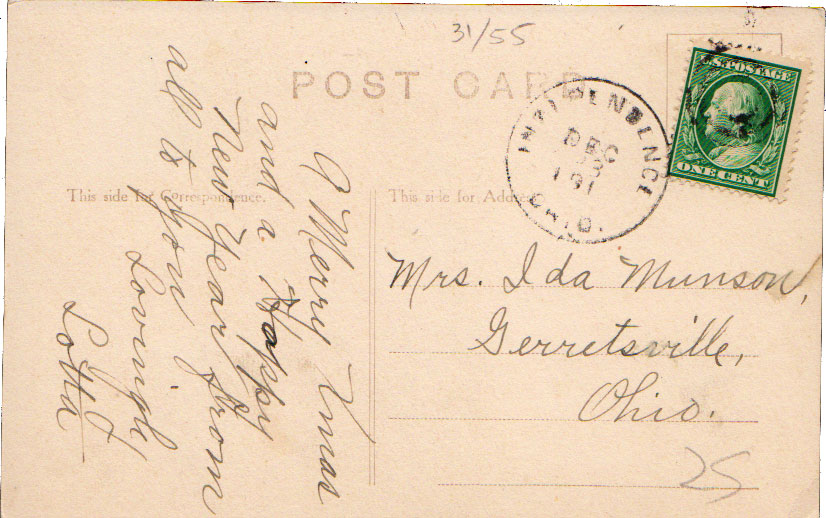 31/55
POST CARD
U.S. POSTAGE
ONE CENT
INDEPENDENCE
DEC
191
OHIO.
This side for Correspondence.
This side for Address
A Merry Xmas
and a Happy
New Year from
all to you
Lovingly
Lotta
Mrs. Ida Munson,
Gerretsville,
Ohio.
25